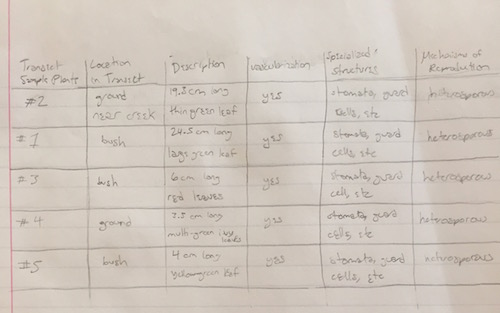 Transect Sample Plants | Location in Transect | Description | vascularization | Specialized structures | Mechanisms of Reproduction
#2 | ground near creek | 19.5 cm long thin green leaf | yes | stomata, guard cells, etc | heterosporous
#1 | bush | 24.5 cm long large green leaf | yes | stomata, guard cells, etc | heterosporous
#3 | bush | 6 cm long red leaves | yes | stomata, guard cell, etc | heterosporous
#4 | ground | cm long multi-green leaves | yes | stomata, guard cells, etc | heterosporous
#5 | bush | 4 cm long yellowgreen leaf | yes | stomata, guard cells, etc | heterosporous